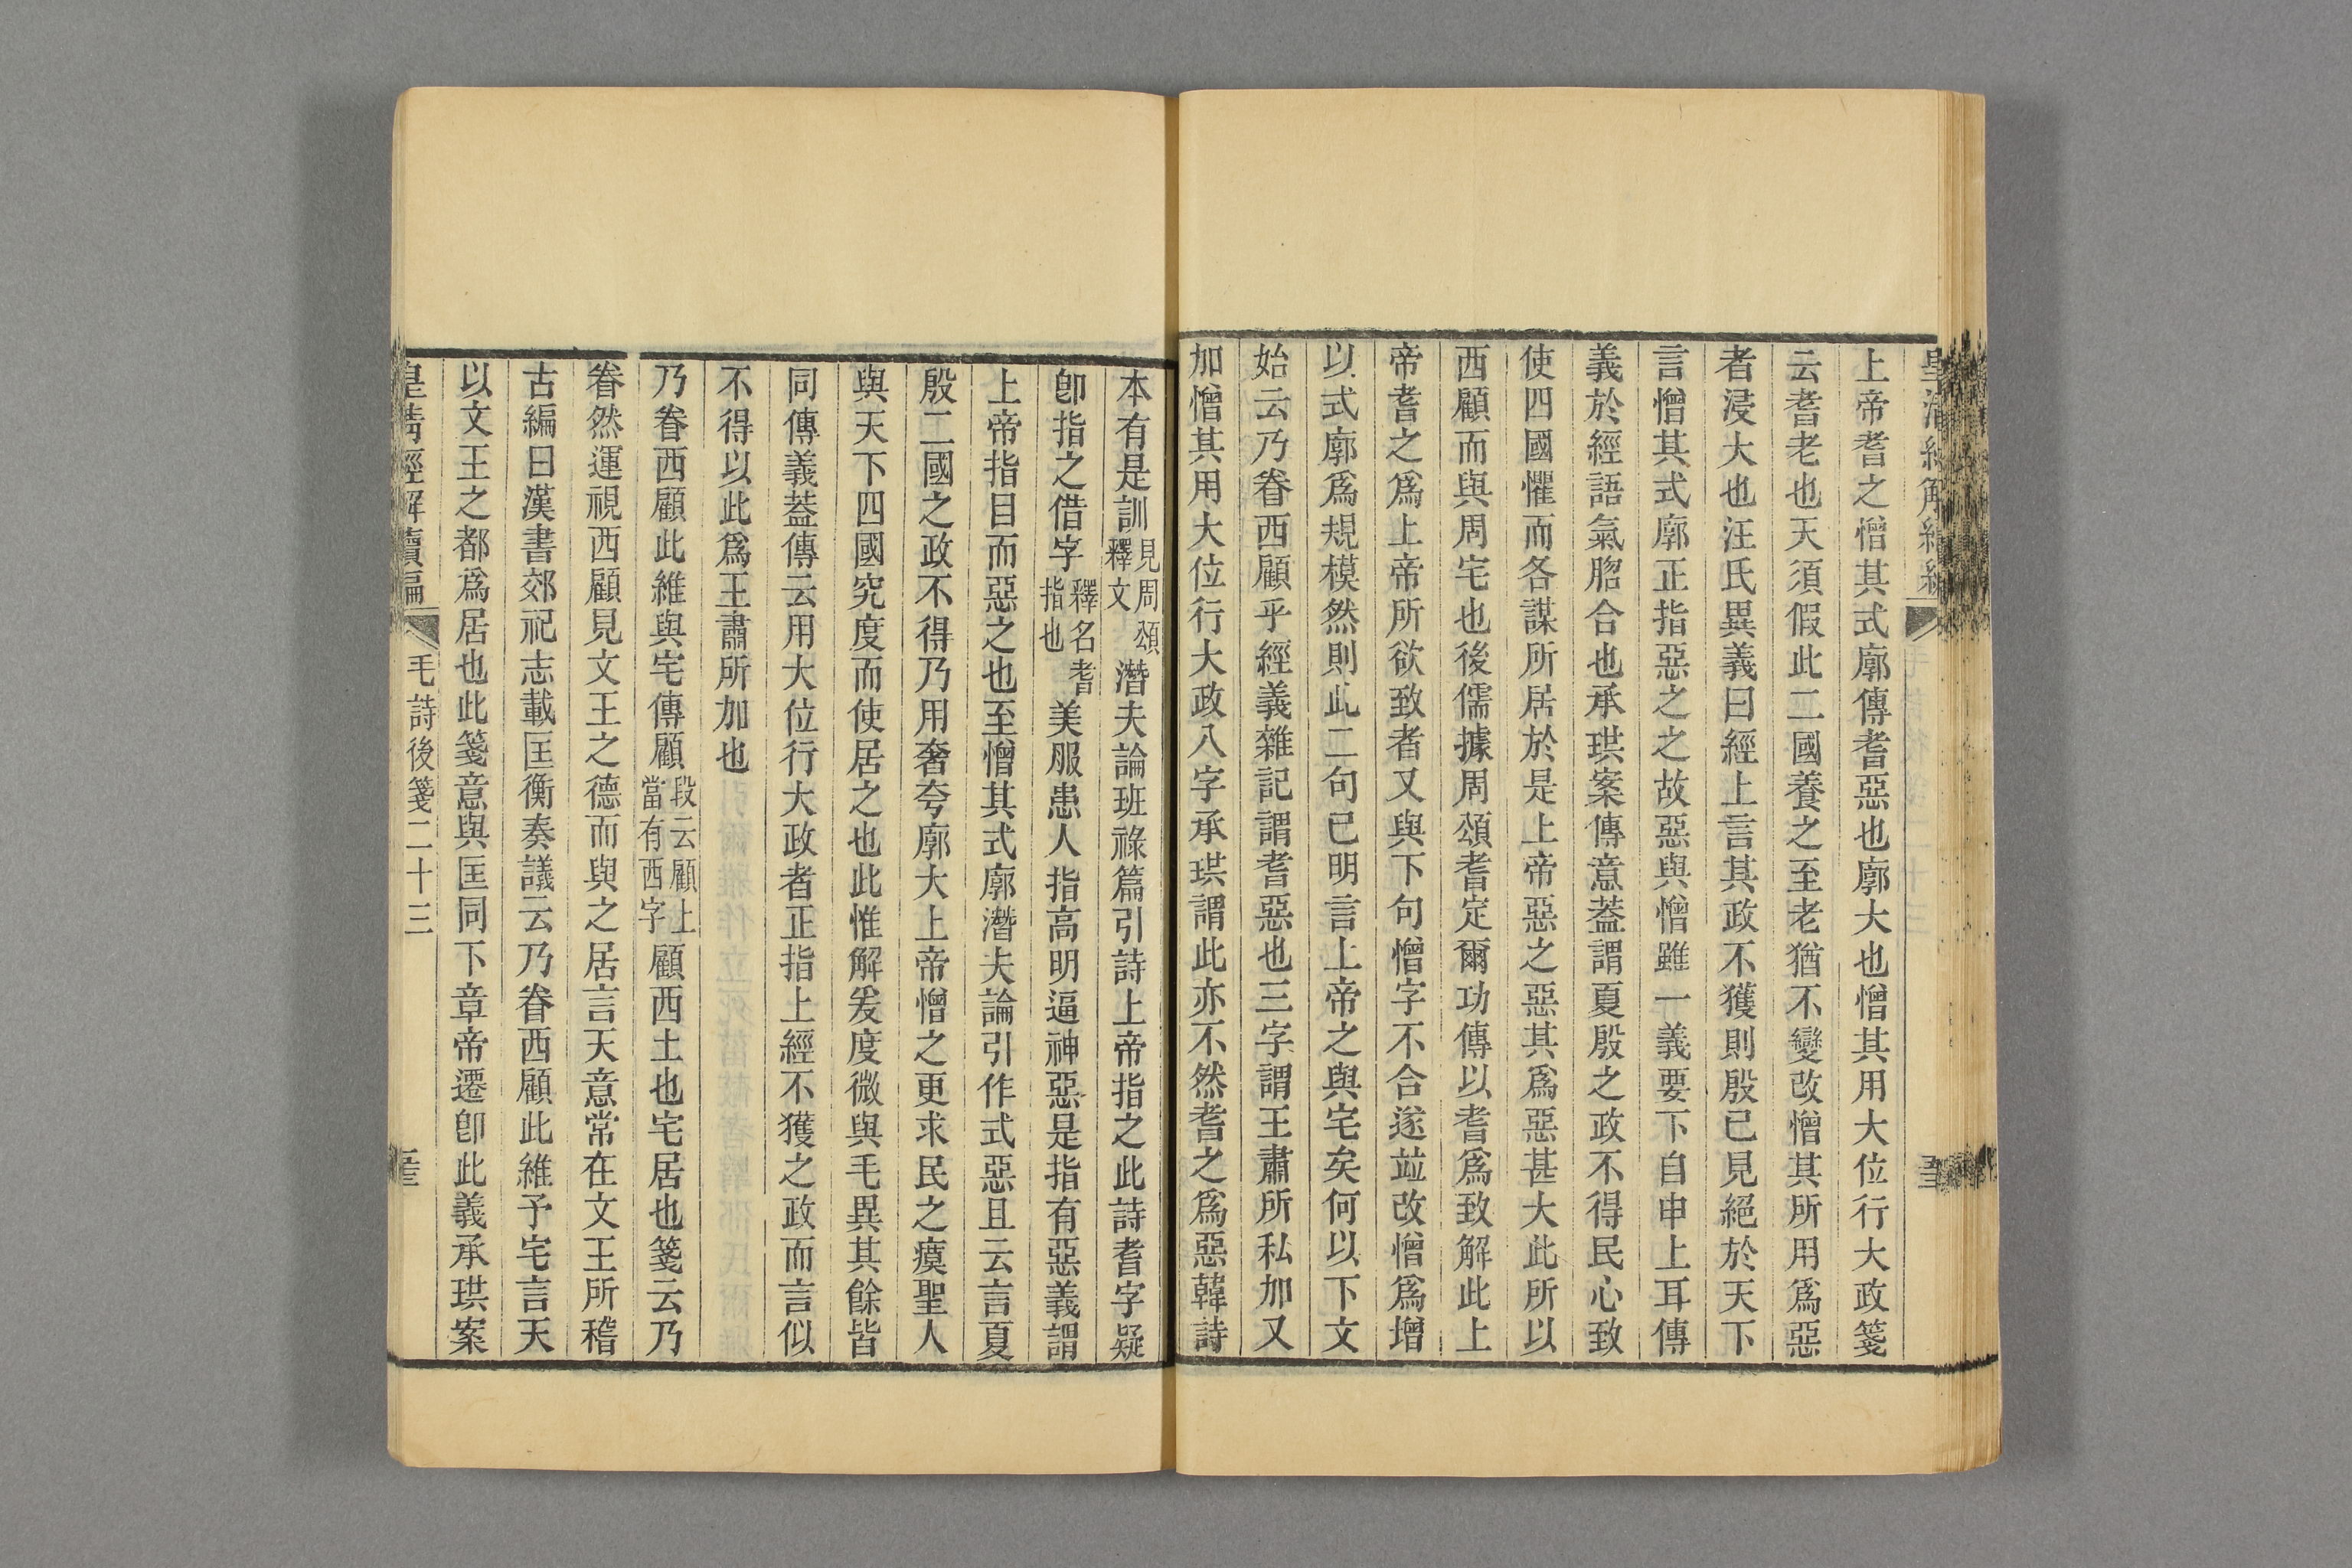 上帝耆之憎其式廓傳耆惡也廓大也憎其用大位行大政箋
云耆老也天須假此二國養之至老猶不變改憎其所用爲惡
者浸大也汪氏異義曰經上言其政不獲則殷已見絕於天下
言憎其式廓正指惡之之故惡與憎雖一義要下自申上耳傳
義於經語氣脗合也承珙案傳意葢謂夏殷之政不得民心致
使四國懼而各謀所居於是上帝惡之惡其爲惡甚大此所以
西顧而與周宅也後儒據周頌耆定爾功傳以耆爲致解此上
帝耆之爲上帝所欲致者又與下句憎字不合遂竝改憎爲增
以式廓爲規模然則此二句已明言上帝之與宅矣何以下文
始云乃眷西顧乎經義雜記謂耆惡也三字謂王肅所私加又
加憎其用大位行大政八字承珙謂此亦不然耆之爲惡韓詩
本有是訓見周頌釋文潛夫論班祿篇引詩上帝指之此詩耆字疑
卽指之借字釋名耆指也美服患人指高明逼神惡是指有惡義謂
上帝指目而惡之也至憎其式廓潛夫論引作式惡且云言夏
殷二國之政不得乃用奢夸廓大上帝憎之更求民之瘼聖人
與天下四國究度而使居之也此惟解爰度微與毛異其餘皆
同傳義葢傳云用大位行大政者正指上經不獲之政而言似
不得以此爲王肅所加也
乃眷西顧此維與宅傳顧段云顧上當有西字顧西土也宅居也箋云乃
眷然運視西顧見文王之德而與之居言天意常在文王所稽
古編曰漢書郊祀志載匡衡奏議云乃眷西顧此維予宅言天
以文王之都爲居也此箋意與匡同下章帝遷卽此義承珙案
皇清經解續編 毛詩後箋二十三